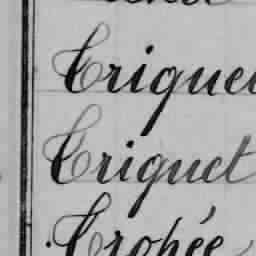 Triquet
Triquet
Trophée